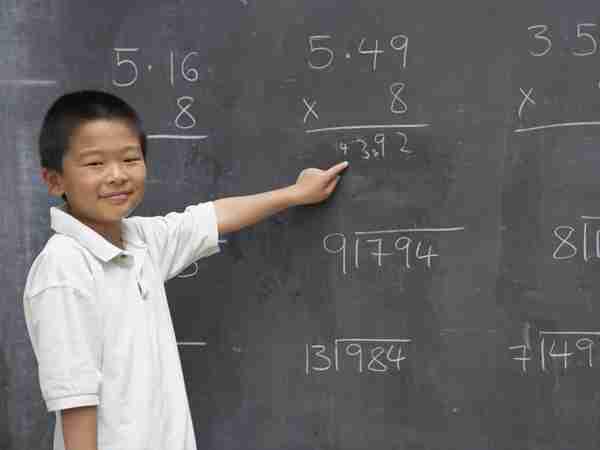 5.16
8
5.49
x 8
43.92
35
x
9)794
8)1
13)984
7)149